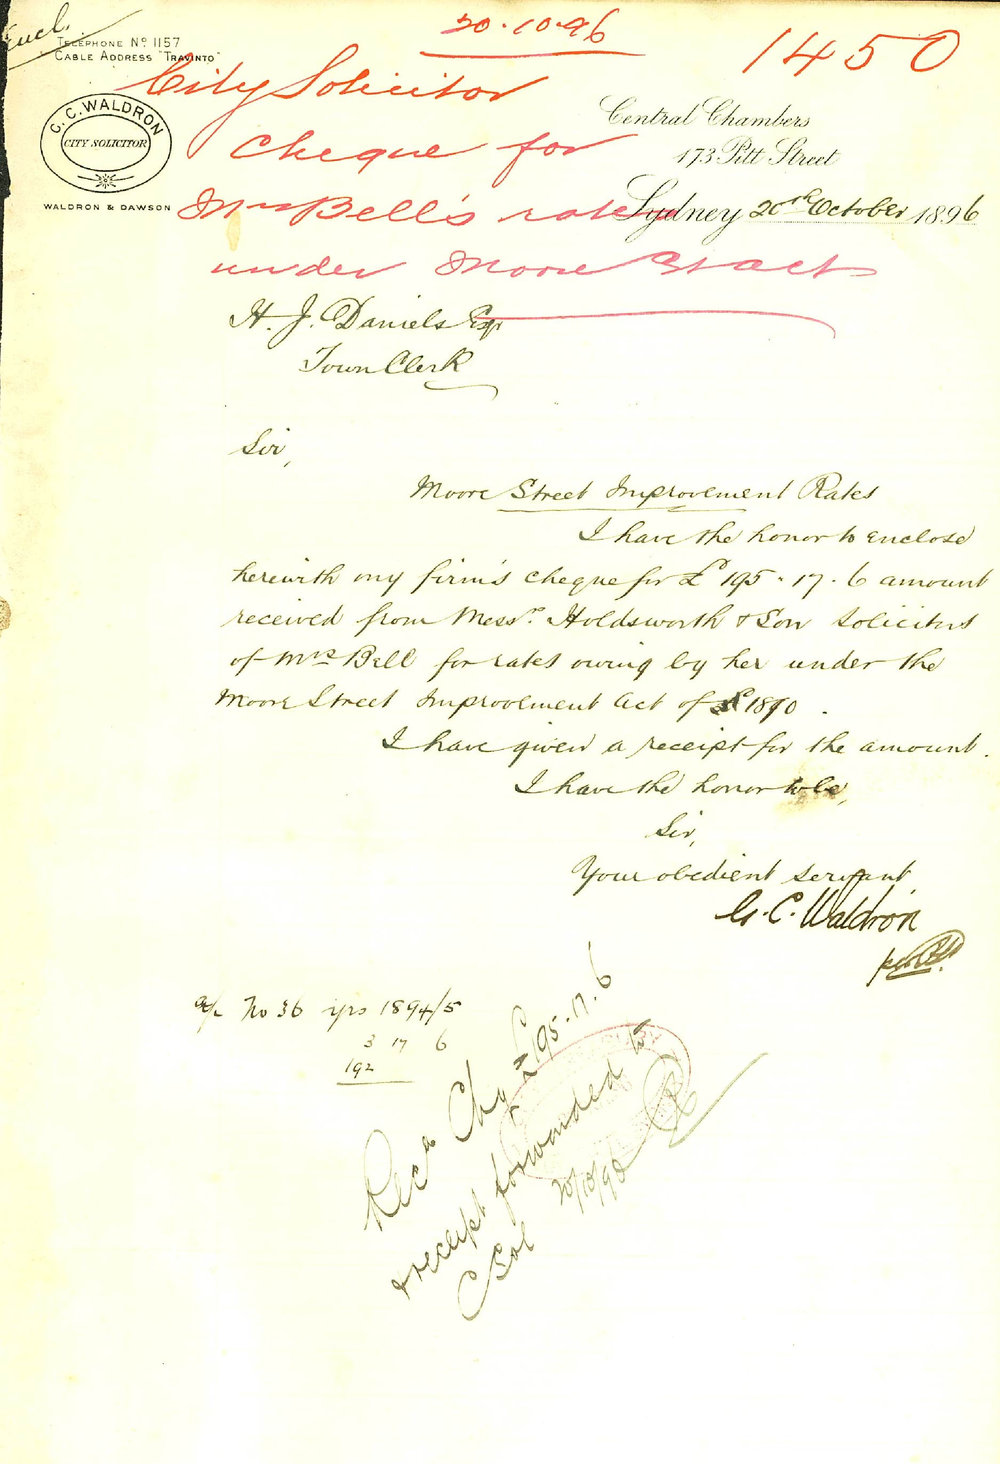 Encl.
20.10.96
1450
TELEPHONE No 1157
CABLE ADDRESS "TRAVINTO"
City Solicitor
C. C. WALDRON
CITY SOLICITOR
WALDRON & DAWSON
Central Chambers
173 Pitt Street
cheque for
Mrs Bell's rates
Sydney 20th October 1896
under Moore St act
H. J. Daniels Esqr
Town Clerk
Sir,
Moore Street Improvement Rates
I have the honor to enclose
herewith my firm's cheque for £195.17.6 amount
received from Messrs. Holdsworth & Son Solicitors
of Mrs Bell for rates owing by her under the
Moore Street Improvement Act of 1890.
I have given a receipt for the amount.
I have the honor to be,
Sir,
Your obedient servant
G. C. Waldron
per
a/c No 36 yrs 1894/5
3 17 6
192
Recd Chq £195.17.6
& receipt forwarded to
C Sol 20/10/96